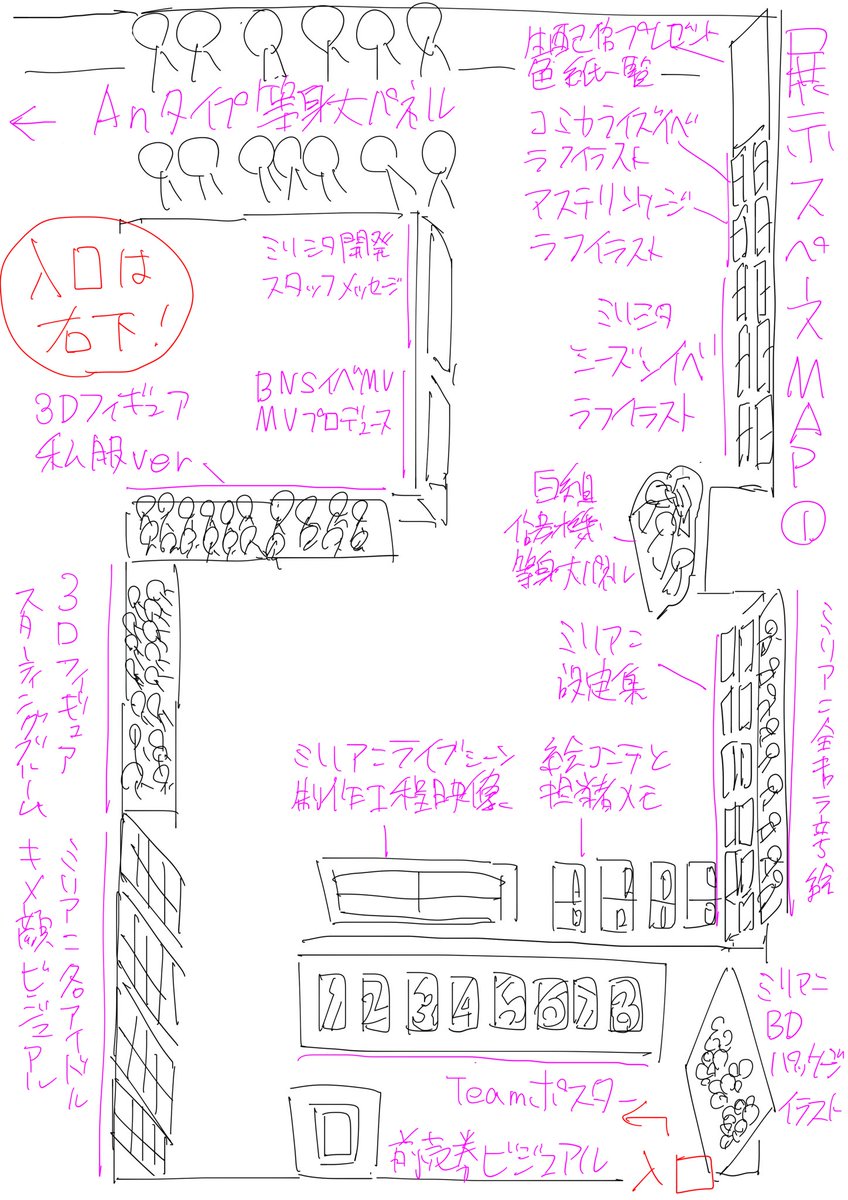 展示スペースMAP①
生配信プレゼント
色紙一覧
← Anタイプ等身大パネル
コミカライズイベ
ラフイラスト
アステリンケージ
ラフイラスト
入口は
右下!
ミリシタ開発
スタッフメッセージ
ミリシタ
シーズンイベ
ラフイラスト
BNSイベMV
MVプロデュース
3Dフィギュア
私服ver
白組
信号機
等身大パネル
3Dフィギュア
スターティングドーム
ミリアニ
設定集
ミリアニ全キャラ立ち絵
ミリアニライブシーン
制作工程映像
絵コンテと
担当者メモ
ミリアニ各アイドル
キメ顔ビジュアル
1 2 3 4 5 6 7 8
ミリアニ
BD
パッケージ
イラスト
Teamポスター
前売券ビジュアル
入口